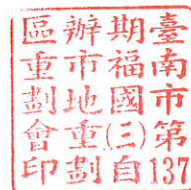 臺南市第137
期福國㈢自
辦市地重劃
區重劃會印